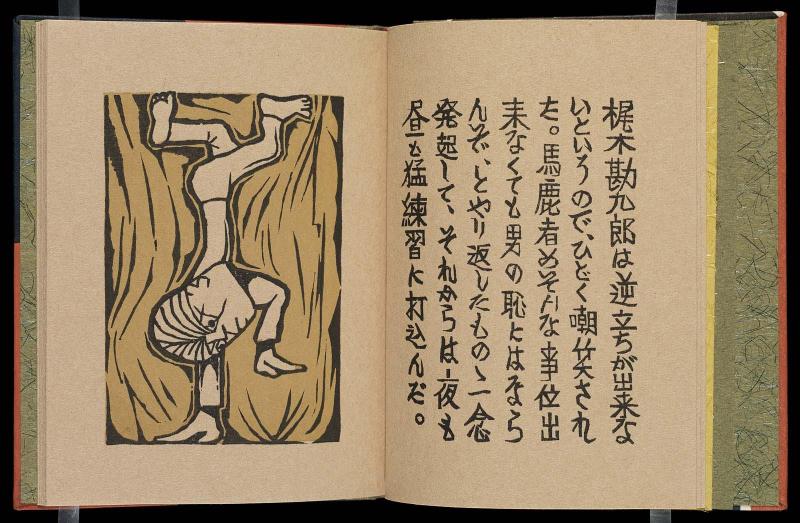 梶木勘九郎は逆立ちが出来な
いというので、ひどく嘲笑され
た。馬鹿者めそんな事位出
来なくても男の恥にはなら
んぞ、とやり返したものゝ一念
発起して、それからは夜も
昼も猛練習に打込んだ。